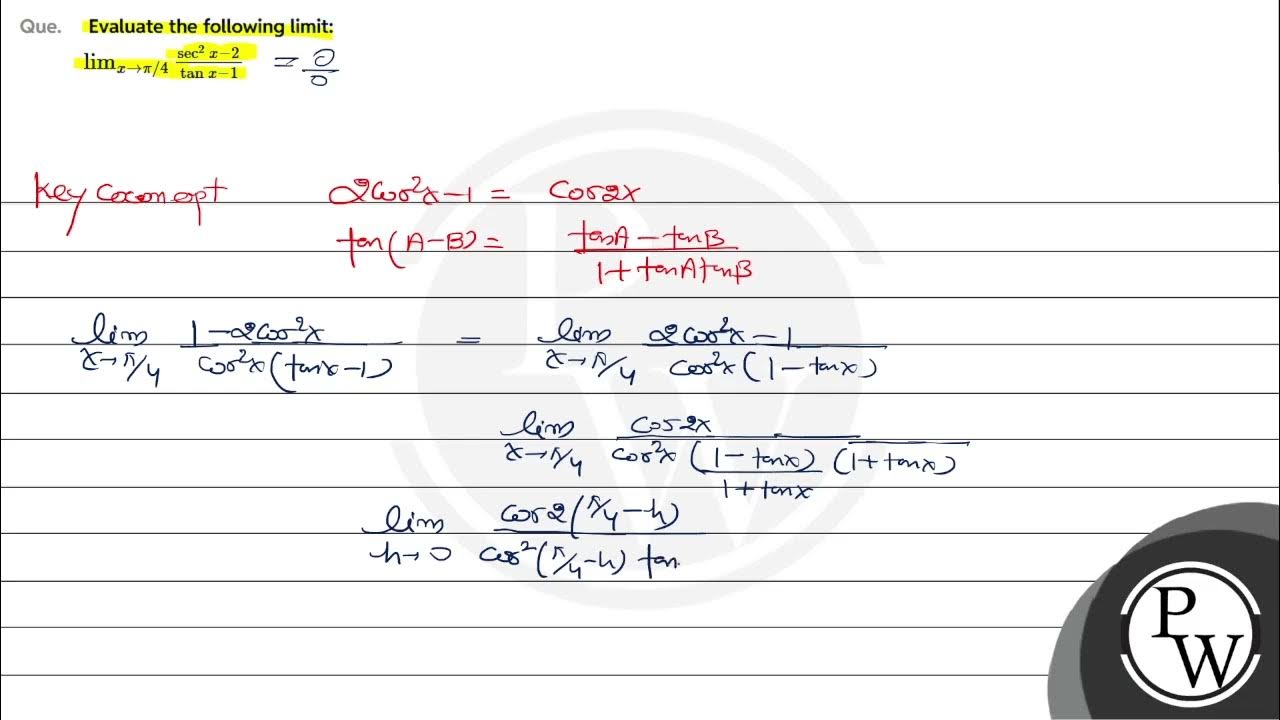 Que. Evaluate the following limit:
lim_{x→π/4} \frac{sec² x−2}{tan x−1} = \frac{0}{0}
Key coconcept 2cos²x−1 = cos2x
tan(A−B) = \frac{tanA − tanB}{1 + tanA tanB}
lim_{x→π/4} \frac{1−2cos²x}{cos²x(tanx−1)} = lim_{x→π/4} \frac{2cos²x−1}{cos²x(1−tanx)}
lim_{x→π/4} \frac{cos2x}{cos²x \frac{(1−tanx)}{1+tanx} (1+tanx)}
lim_{h→0} \frac{cos2(π/4−h)}{cos²(π/4−h) tan}
P
W